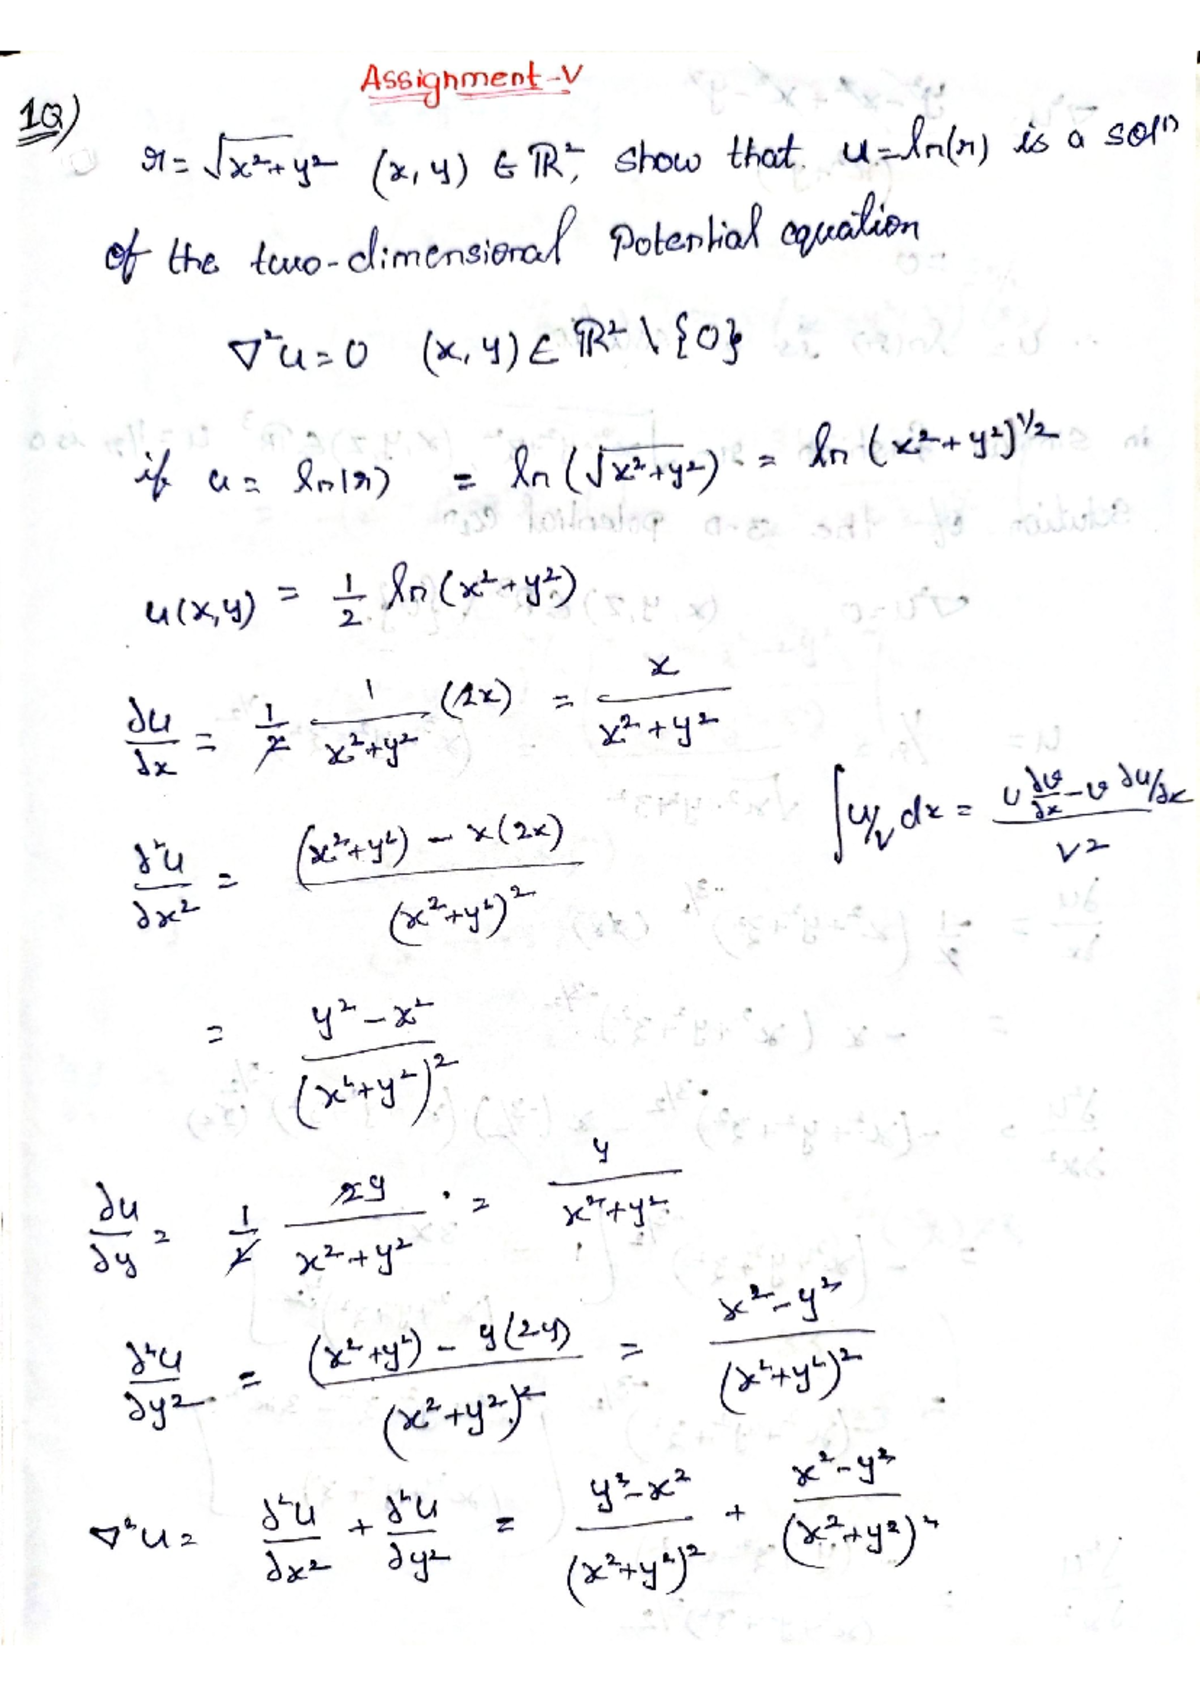 Assignment-V
1Q)
r = √x²+y² (x, y) ∈ ℝ², show that u=ln(r) is a solⁿ
of the two-dimensional Potential equation
∇²u=0 (x, y) ∈ ℝ² \ {0}
if u = ln(r) = ln(√x²+y²) = ln (x²+y²)^1/2
u(x,y) = 1/2 ln(x²+y²)
∂u/∂x = 1/2 1/(x²+y²) (2x) = x/(x²+y²)
∫u/v dx = (v ∂v/∂x - v ∂u/∂x)/v2
∂²u/∂x² = ((x²+y²) - x(2x))/(x²+y²)²
= (y²-x²)/(x²+y²)²
∂u/∂y = 1/2 2y/(x²+y²) . = y/(x²+y²)
∂²u/∂y² = ((x²+y²) - y(2y))/(x²+y²)² = (x²-y²)/(x²+y²)²
∇²u = ∂²u/∂x² + ∂²u/∂y² = (y²-x²)/(x²+y²)² + (x²-y²)/(x²+y²)²